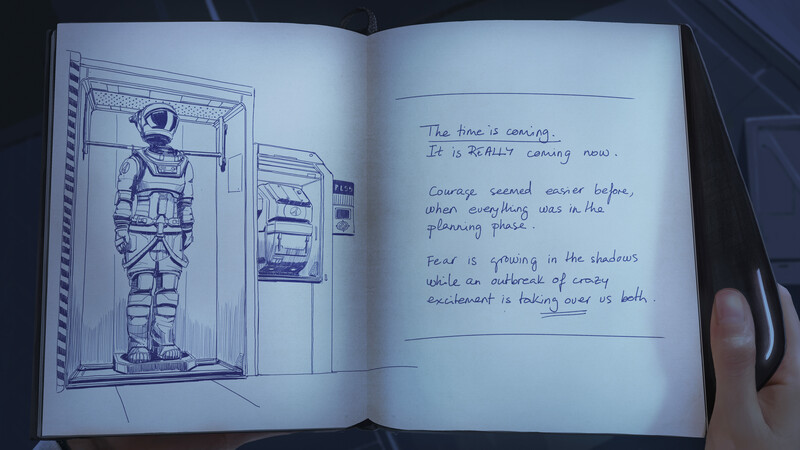 PLSS
The time is coming.
It is REALLY coming now.
Courage seemed easier before,
when everything was in the
planning phase.
Fear is growing in the shadows
while an outbreak of crazy
excitement is taking over us both.